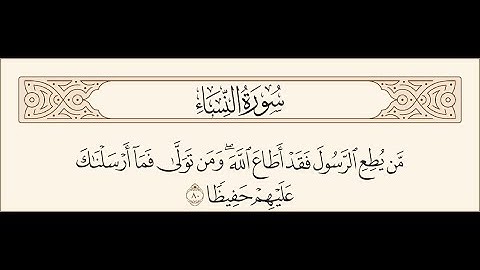 سُورَةُ النِّسَاءِ
مَّن يُطِعِ ٱلرَّسُولَ فَقَدْ أَطَاعَ ٱللَّهَ ۖ وَمَن تَوَلَّىٰ فَمَآ أَرْسَلْنَـٰكَ
عَلَيْهِمْ حَفِيظًا ٨٠